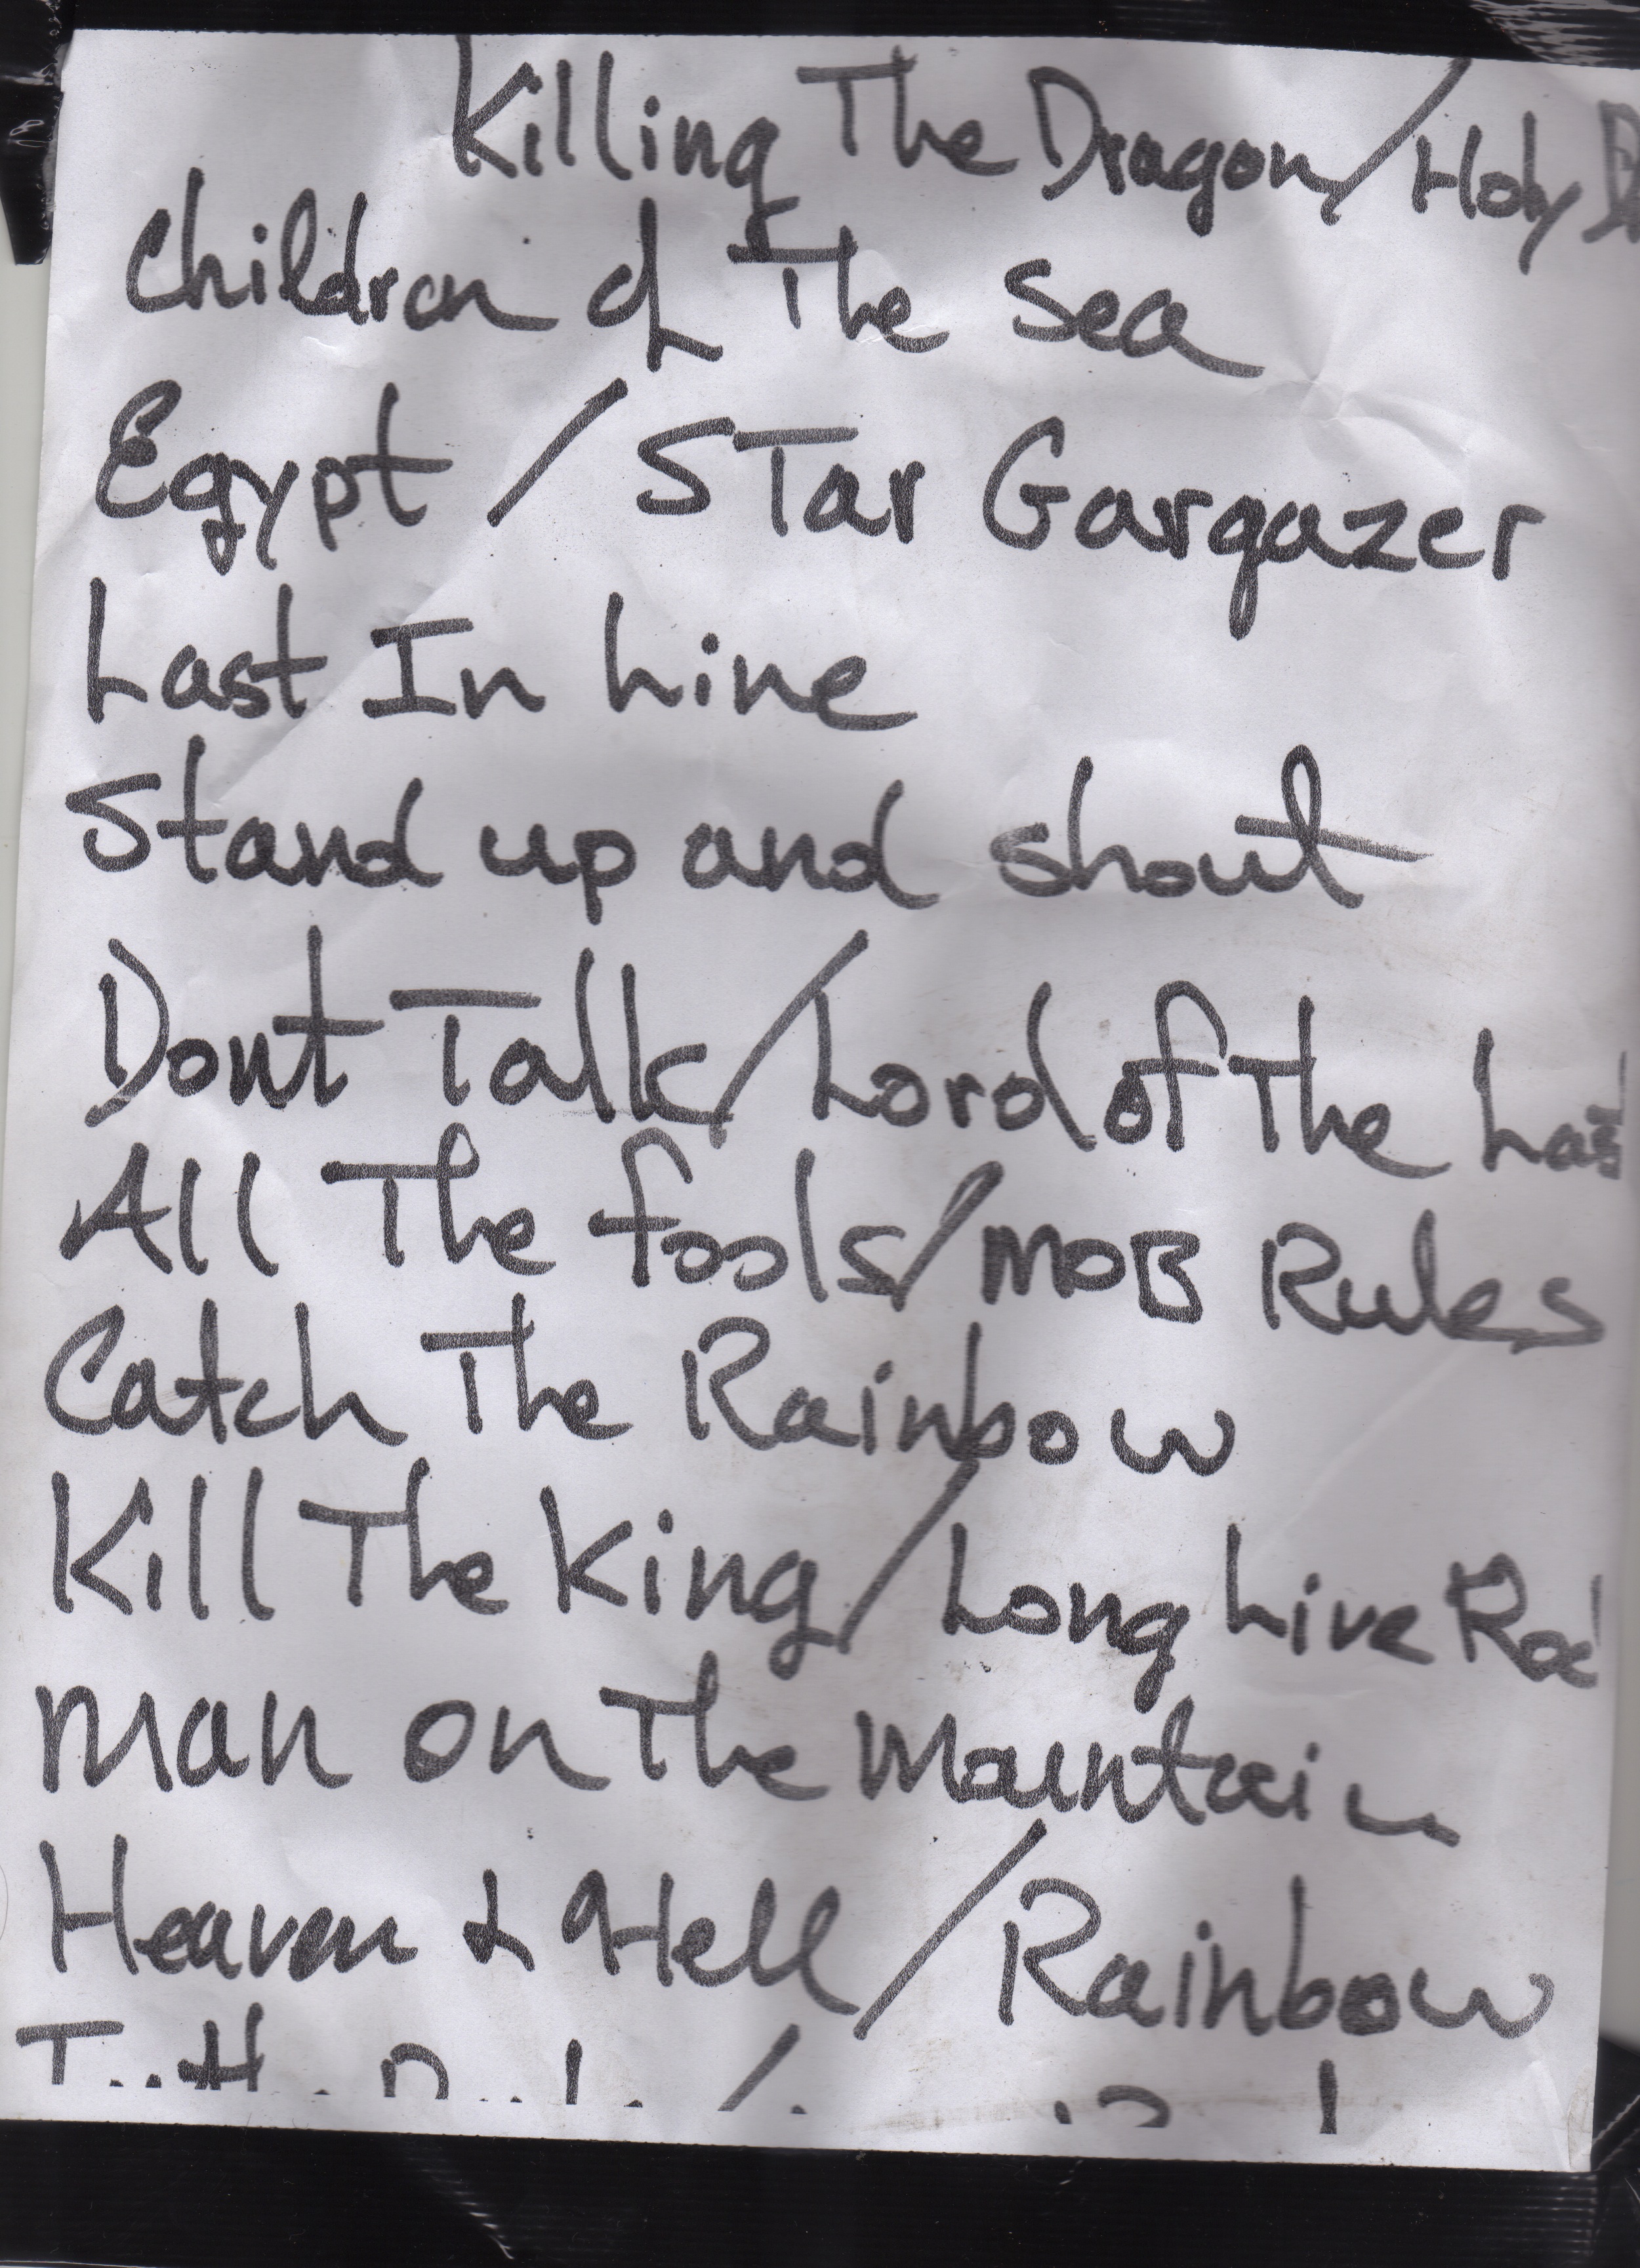 Killing The Dragon/Holy D
Children of The Sea
Egypt / STar Gargazer
Last In Line
Stand up and shout
Dont Talk/Lord of The Las
All The fools/MOB Rules
Catch The Rainbow
Kill The King/Long Live Roc
Man on The Mountain
Heaven & Hell/Rainbow